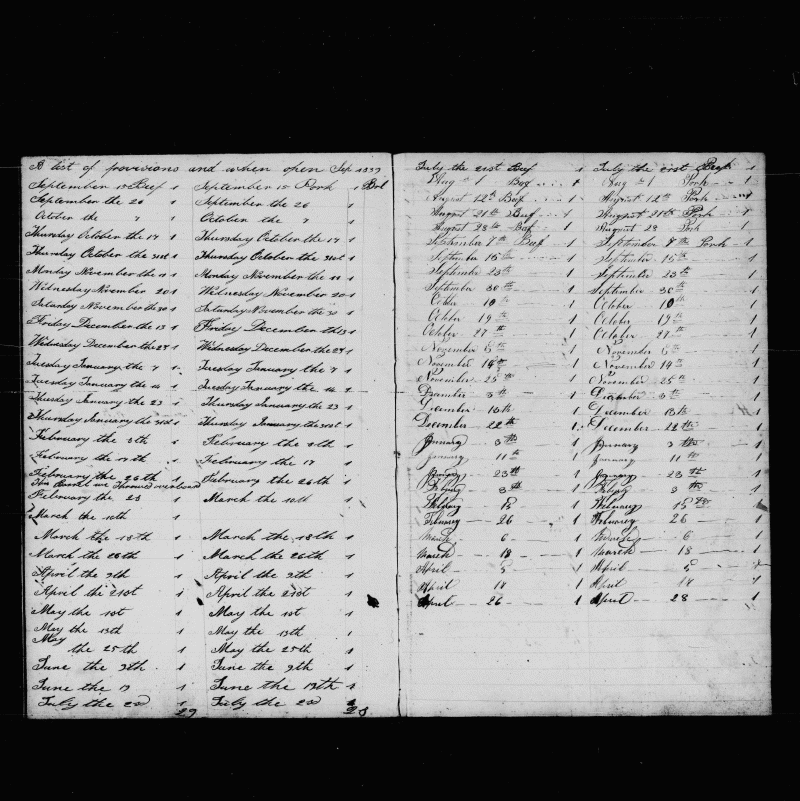 A list of provisions and when open Sep 1839
September 15 Beef 1 September 15 Pork 1 Bbl
September the 26 1 September the 26 1
October the 7 1 October the 7 1
Thursday October the 17 1 Thursday October the 17 1
Thursday October the 31st 1 Thursday October the 31st 1
Monday November the 11 1 Monday November the 11 1
Wednesday November 20 1 Wednesday November 20 1
Saturday November the 30 1 Saturday November the 30 1
Friday December the 13 1 Friday December the 13 1
Wednesday December the 24 1 Wednesday December the 24 1
Tuesday January the 7 1 Tuesday January the 7 1
Tuesday January the 14 1 Tuesday January the 14 1
Thursday January the 23 1 Thursday January the 23 1
Thursday January the 31st 1 Thursday January the 31st 1
February the 8th 1 February the 8th 1
February the 17th 1 February the 17 1
February the 26th 1 February the 26th 1
This Barrel we throwed overboard
February the 28 1 March the 10th 1
March the 10th 1
March the 18th 1 March the 18th 1
March the 26th 1 March the 26th 1
April the 9th 1 April the 9th 1
April the 21st 1 April the 21st 1
May the 1st 1 May the 1st 1
May the 13th 1 May the 13th 1
May
the 25th 1 May the 25th 1
June the 9th 1 June the 9th 1
June the 19 1 June the 19th 1
July the 2d 1 July the 2d 1
29 28
July the 21st Beef 1 July the 21st 1
Aug 1 Beef 1 Aug 1 Pork 1
August 12th Beef 1 August 12th Pork 1
August 21th Beef 1 August 21th Pork 1
August 28th Beef 1 August 28 Pork 1
September 7th Beef 1 September 7th Pork 1
September 15th 1 September 15th 1
September 23th 1 September 23th 1
September 30th 1 September 30th 1
October 10th 1 October 10th 1
October 19th 1 October 19th 1
October 27th 1 October 27th 1
November 6th 1 November 6th 1
November 14th 1 November 14th 1
November 25th 1 November 25th 1
December 3th 1 December 3th 1
December 13th 1 December 13th 1
December 22th 1 December 22th 1
January 3th 1 January 3th 1
January 11th 1 January 11th 1
January 23th 1 January 23th 1
3th 1 3th 1
15 1 February 15 1
February 26 1 February 26 1
March 6 1 March 6 1
March 18 1 March 18 1
April 5 1 April 5 1
April 14 1 April 14 1
April 26 1 April 28 1